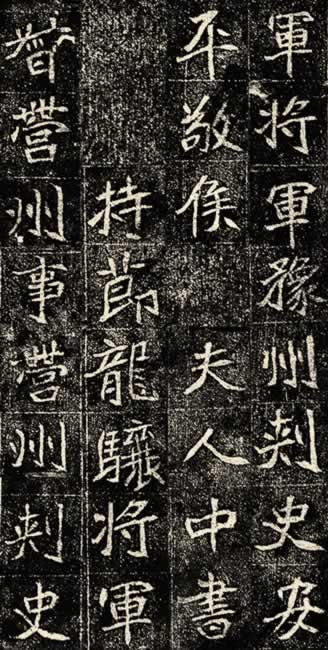 軍将軍豫州刾史安
平敬侯 夫人中書
持莭龍驤将軍
督營州事營州刾史